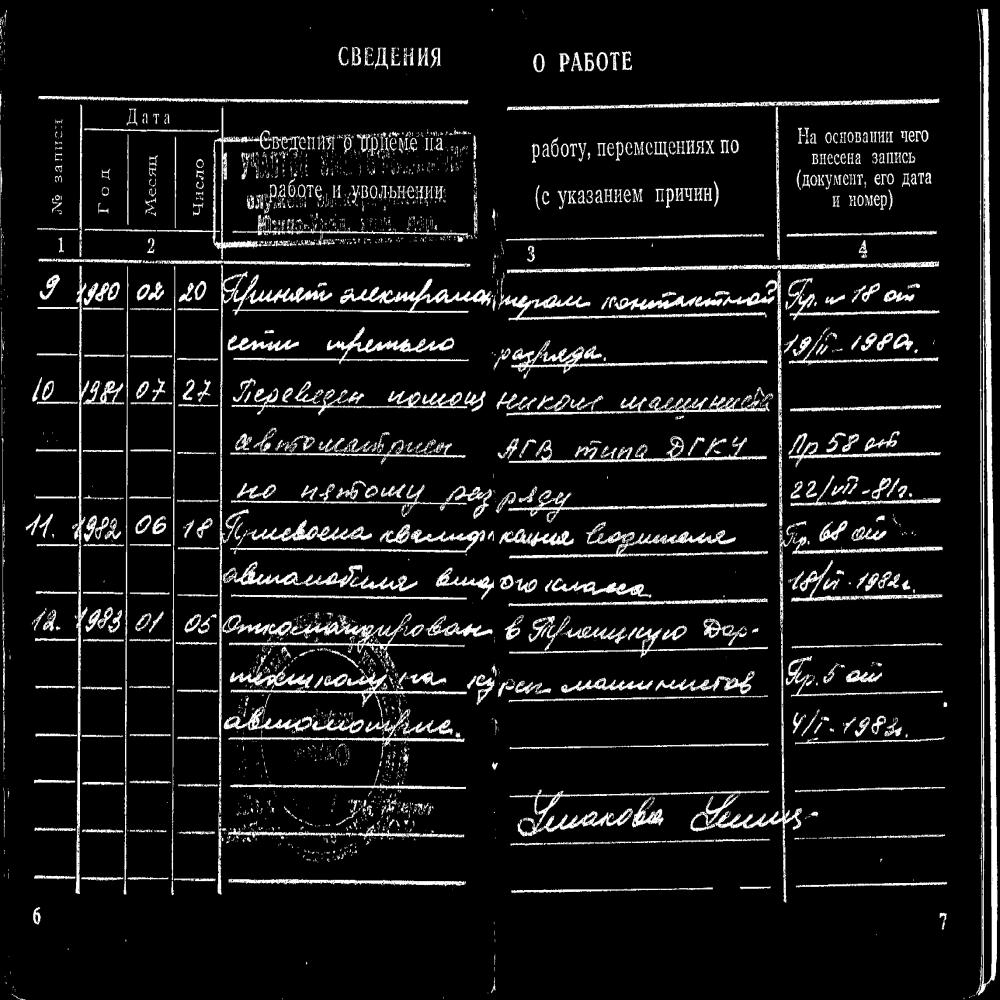 СВЕДЕНИЯ О РАБОТЕ
№ записи
Дата
Год
Месяц
Число
Сведения о приеме на работу, перемещениях по
работе и увольнении (с указанием причин)
На основании чего
внесена запись
(документ, его дата
и номер)
1 2 3 4
9 1980 02 20 Принят электромонтером контактной Пр. № 18 от
сети третьего разряда. 19/II-1980г.
10 1981 07 27 Переведен помощником машиниста
автомотрисы АГВ типа ДГКУ Пр 58 от
по пятому разряду 22/VII-81г.
11. 1982 06 18 Присвоена квалификация водителя Пр. 68 от
автомобиля второго класса 18/VI-1982г.
12. 1983 01 05 Откомандирован в Троицкую Дор-
техшколу на курсы машинистов Пр. 5 от
автомотрис. 4/I-1983г.
Ушакова
6 7